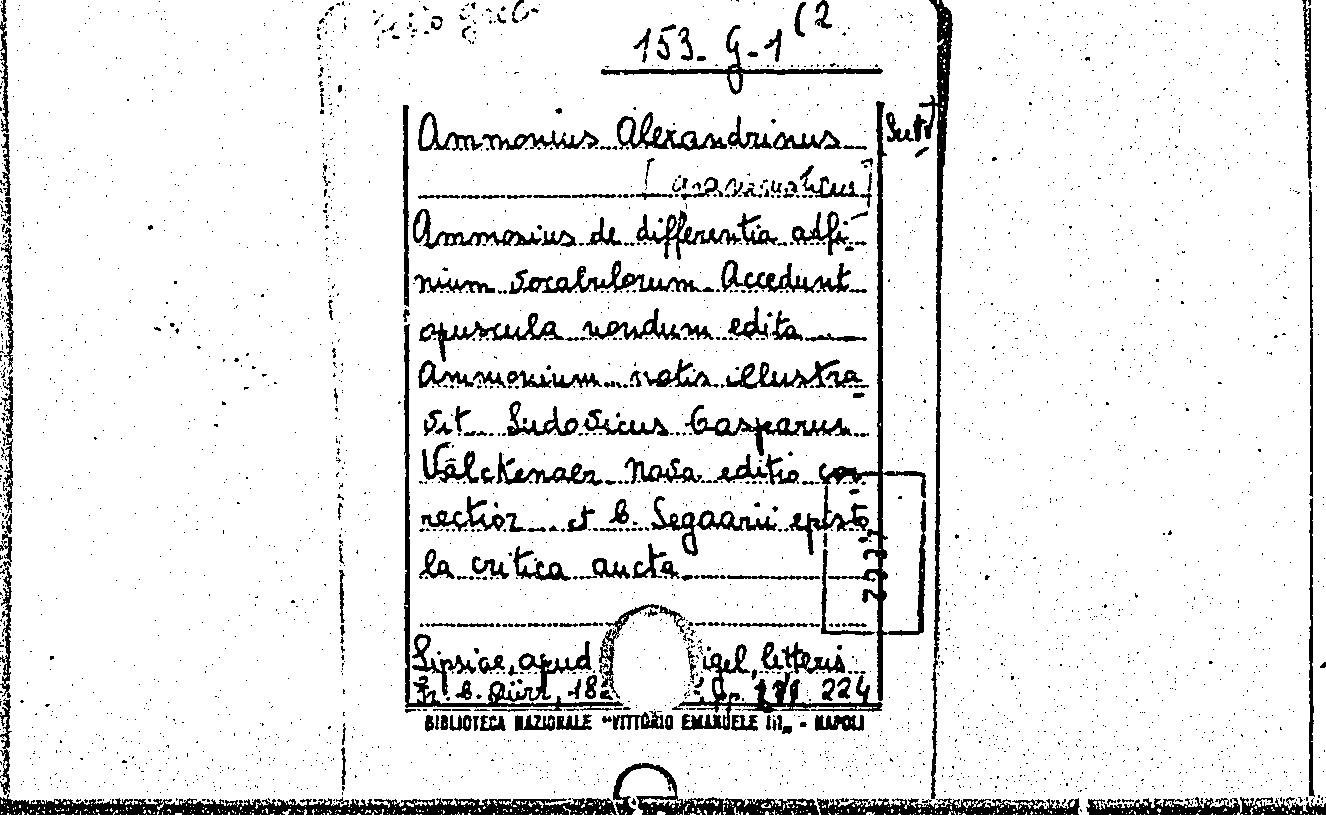 testo greco
153. G-1 (2
Ammonius Alexandrinus
[grammaticus]
Ammonius de differentia adfi-
nium vocabulorum. Accedunt
opuscula nondum edita
Ammonium notis illustra-
vit Ludovicus Casparus
Valckenaer Nova editio cor-
rectior et C. Segaarii episto-
la critica aucta
Lipsiae, apud igel, litteris
Fr. C. Dürr, 182 pp. 224
BIBLIOTECA NAZIONALE "VITTORIO EMANUELE III" - NAPOLI